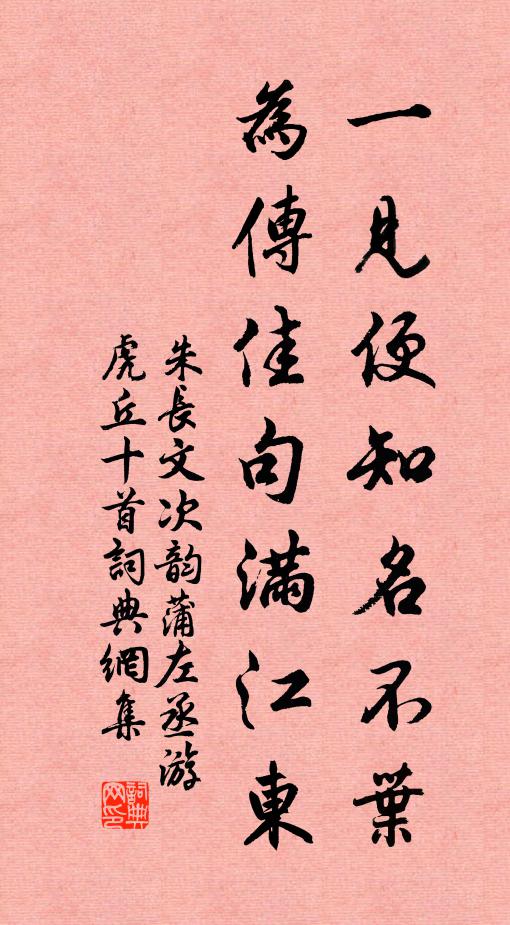 一見便知名不葉
為傳佳句滿江東
朱長文次韵蒲左丞游
虎丘十首詞典網集
詞典网印